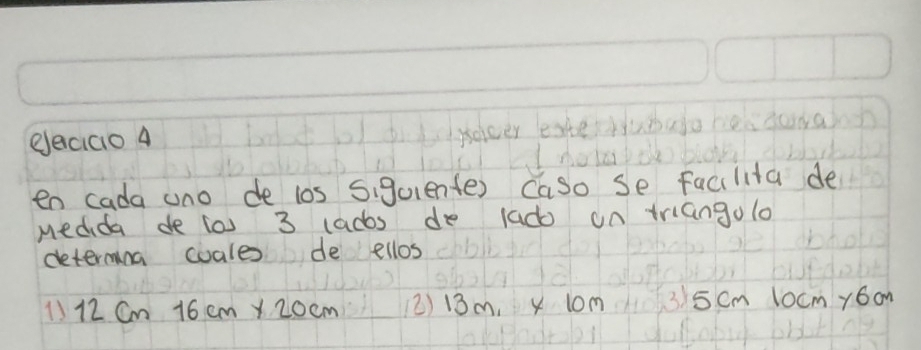 ejercicio 4
en cada uno de los siguientes caso se facilita de
medida de los 3 lados de lado un triangulo
determina cuales de ellos
1) 12 cm 16 cm y 20 cm 2) 13 m, y 10 m 3) 5 cm 10 cm y 6 cm